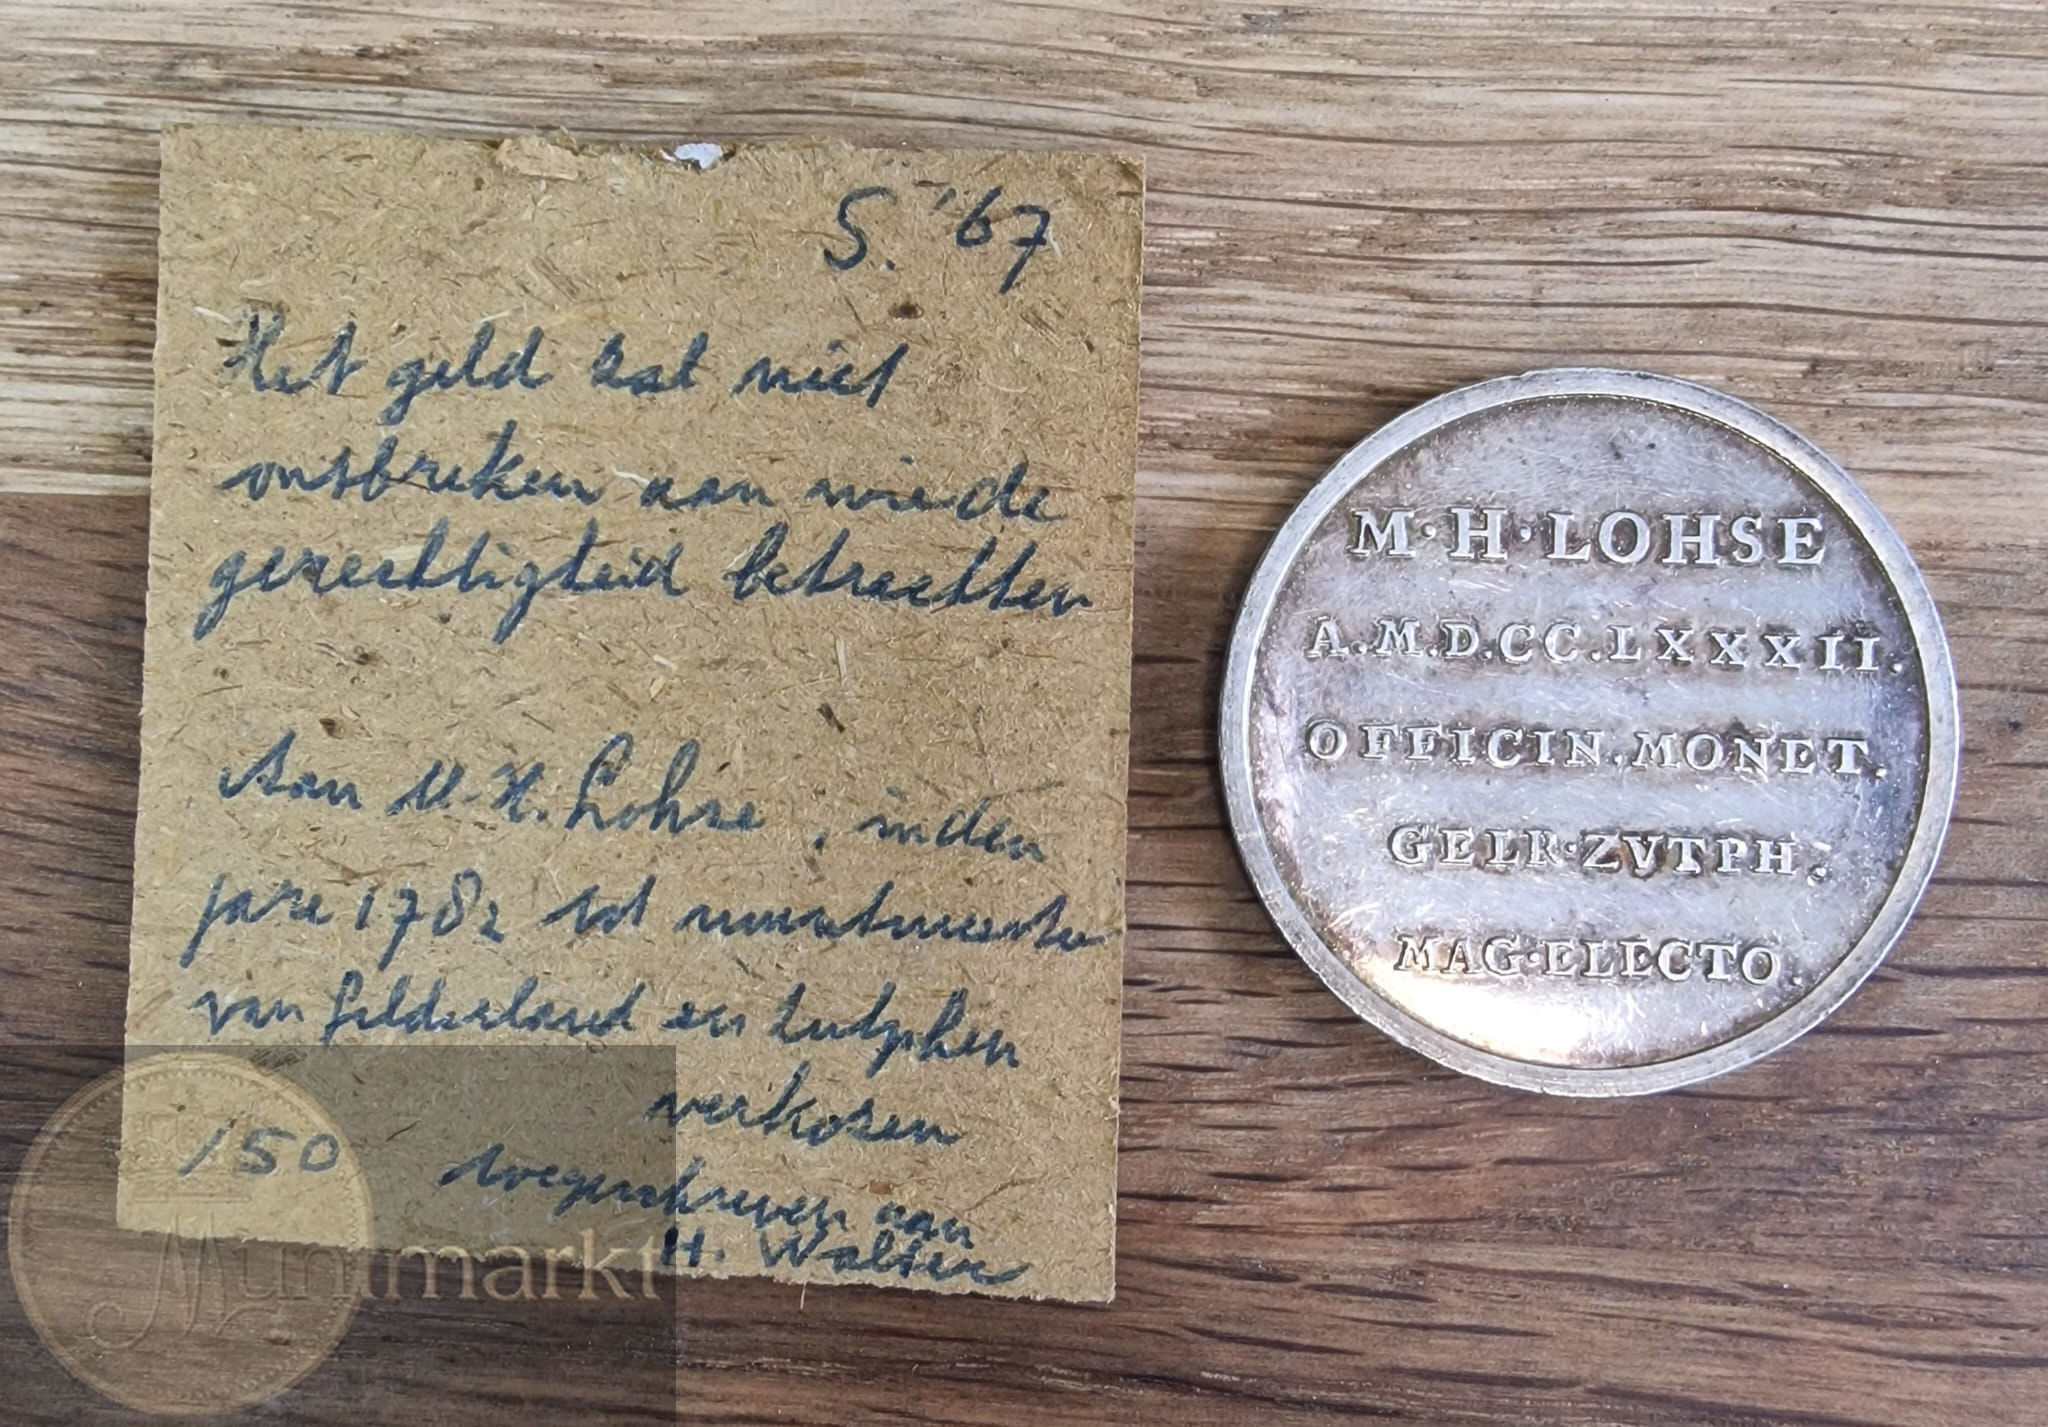 S. '67
Het geld zal niet
ontbreken aan wie de
gerechtigheid betrachten
Aan M. H. Lohse, in den
jare 1782 tot muntmeester
van Gelderland en Zutphen
verkozen
toegeschreven aan
H. Walter
150
M·H·LOHSE
A.M.D.CC.LXXXII.
OFFICIN.MONET.
GELR·ZVTPH.
MAG·ELECTO.
Muntmarkt